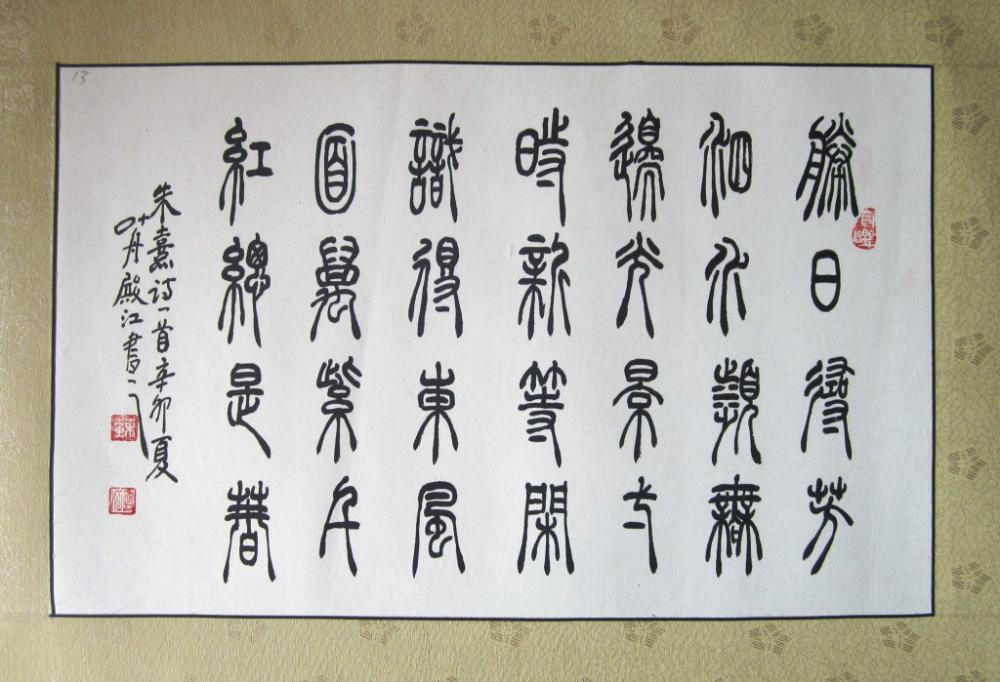 13
勝日尋芳
泗水瀕無
邊光景一
時新等閑
識得東風
面萬紫千
紅總是春
朱熹诗一首辛卯夏
叶舟殿江書